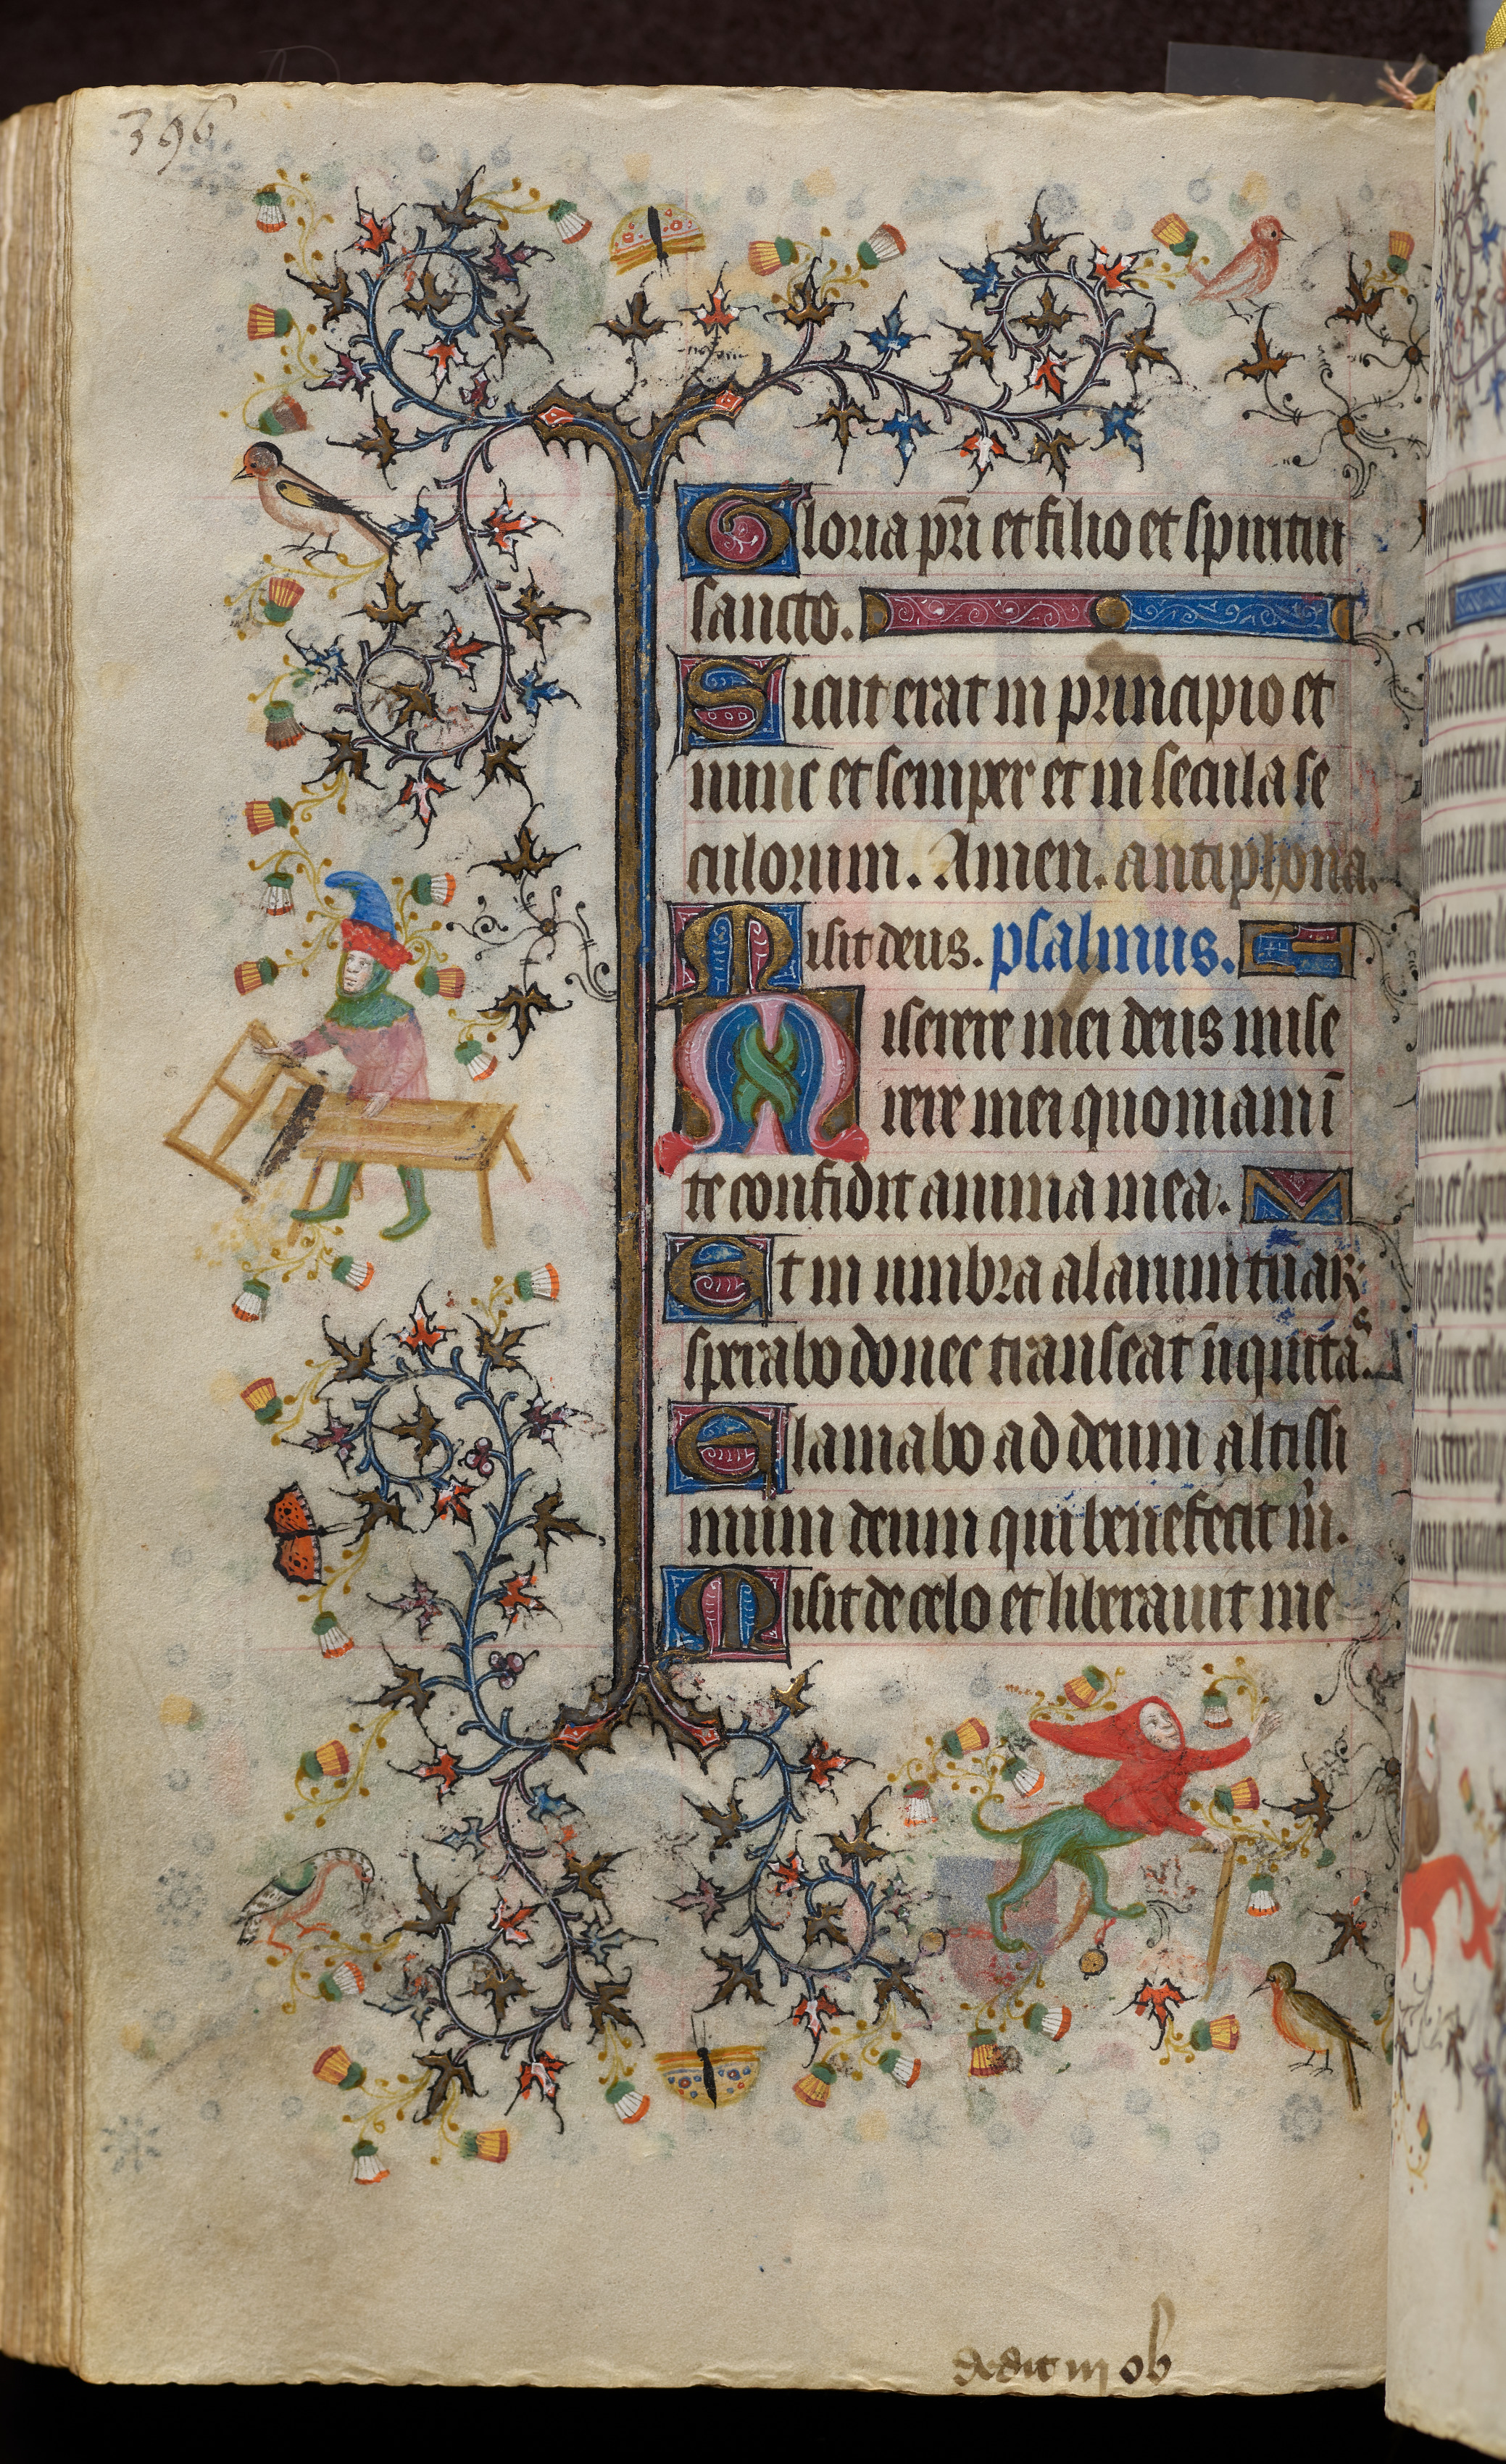 396
Gloria pr̄i et filio et spiritui
sancto.
Sicut erat in principio et
nunc et semper et in secula se
culorum. Amen. antiphona.
Misit deus. psalmus.
Miserere mei deus mise
rere mei quoniam ī
te confidit anima mea.
Et in umbra alarum tuaꝝ
sperabo donec transeat īiquitas.
Clamabo ad deum altissi
mum deum qui benefecit m̄.
Misit de celo et liberauit me
dedit in ob